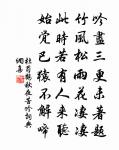 吟盡三更未著題
竹風松雨花淒淒
此時若有人來聽
始覺巴猿不解啼
杜荀鶴秋夜苦吟詞典
網